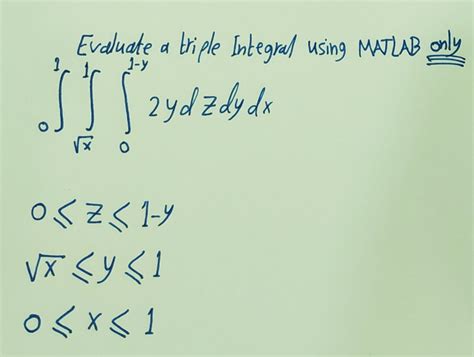 Evaluate a triple Integral using MATLAB only
∫₀¹ ∫_√x¹ ∫₀^1-y 2y dz dy dx
0 ≤ z ≤ 1-y
√x ≤ y ≤ 1
0 ≤ x ≤ 1